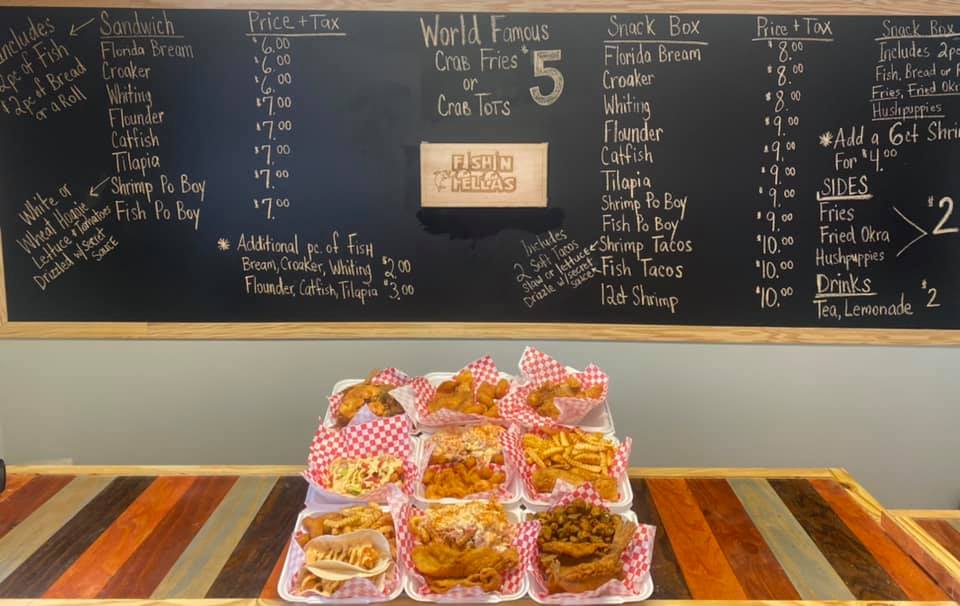 Includes
2pc of Fish
+ 2pc of Bread
or a Roll
Sandwich
Florida Bream
Croaker
Whiting
Flounder
Catfish
Tilapia
Shrimp Po Boy
Fish Po Boy
White or
Wheat Hoagie
Lettuce + Tomatoes
Drizzled w/ secret
sauce
Price + Tax
$6.00
$6.00
$6.00
$7.00
$7.00
$7.00
$7.00
$7.00
* Additional pc. of Fish
Bream, Croaker, Whiting $2.00
Flounder, Catfish, Tilapia $3.00
World Famous
Crab Fries $5
or
Crab Tots
FISH'N
FELLAS
Snack Box
Florida Bream
Croaker
Whiting
Flounder
Catfish
Tilapia
Shrimp Po Boy
Fish Po Boy
Shrimp Tacos
Fish Tacos
12ct Shrimp
Includes
2 Soft Tacos
Slaw or lettuce
Drizzle w/ secret
sauce
Price + Tax
$8.00
$8.00
$8.00
$9.00
$9.00
$9.00
$9.00
$10.00
$10.00
$10.00
Snack Box
Includes 2pc
Fish, Bread or
Fries, Fried
Hushpuppies
* Add a 6ct
For $4.00
SIDES
Fries
Fried Okra
Hushpuppies
$2
Drinks
Tea, Lemonade $2